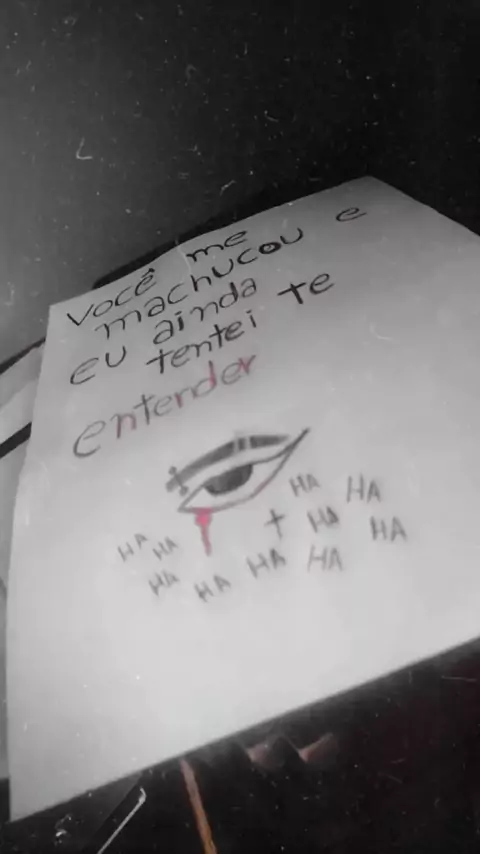 Você me
machucou e
eu ainda
tentei te
entender
HA HA
HA HA HA HA
HA HA HA HA